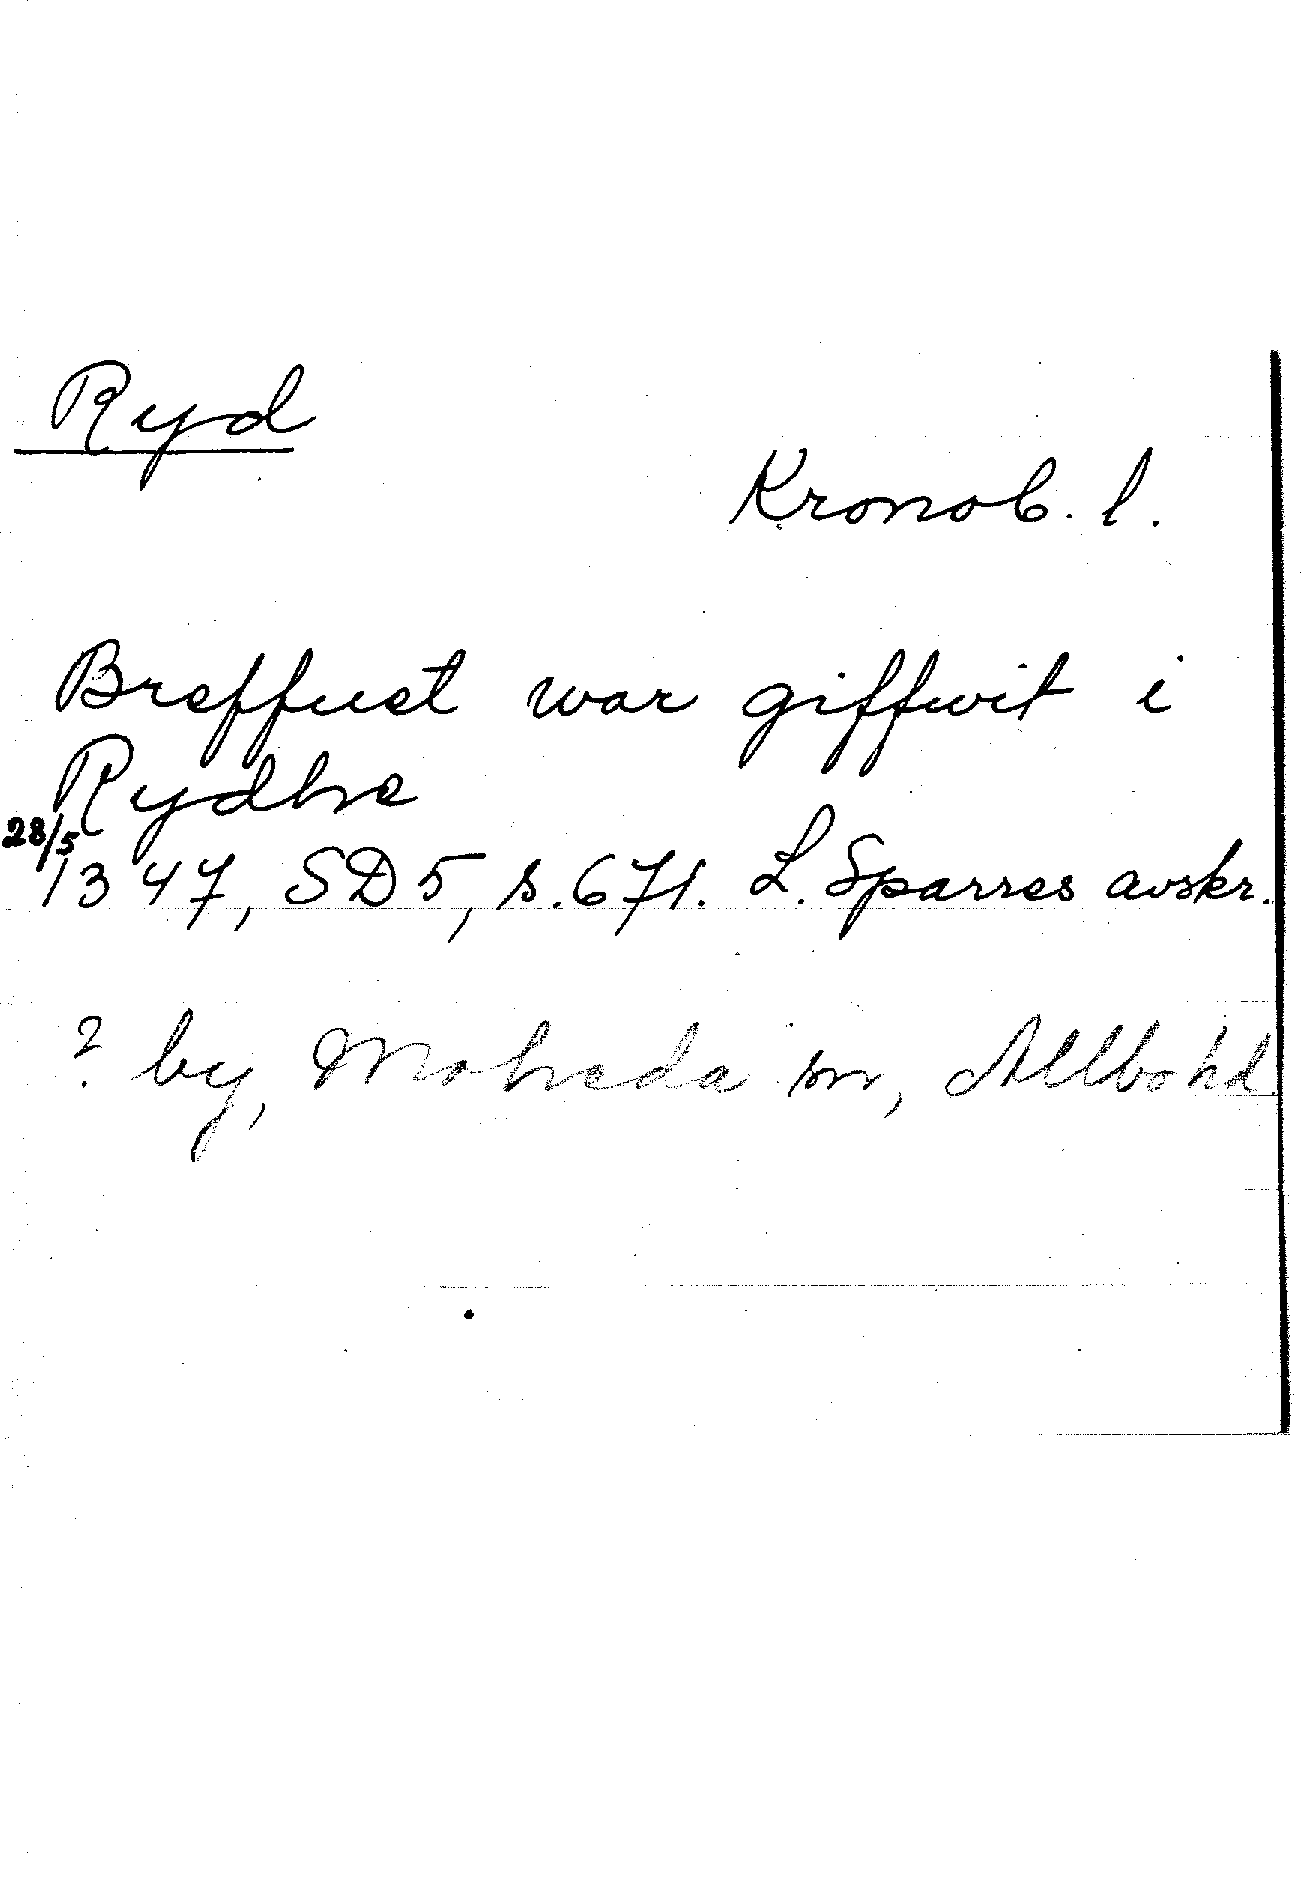 Ryd
Kronob. l.
Breffuet war giffwit i
Rydhe
28/5
1347, SD 5, s. 671. L. Sparres avskr.
? by, Moheda sn, Allbo hd